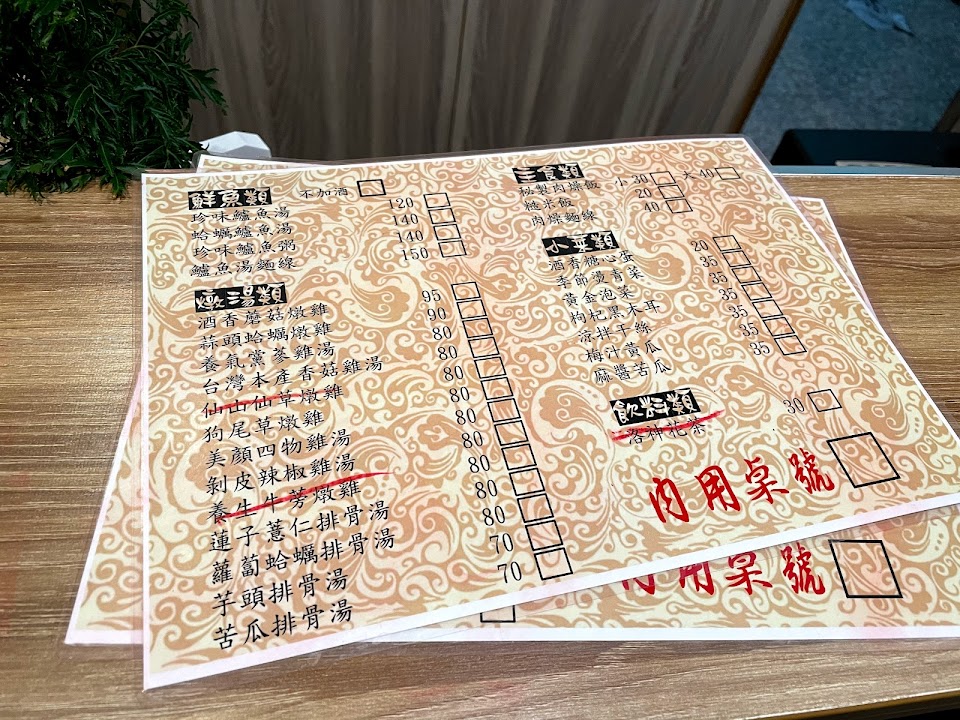 鮮魚類 不加酒
珍味鱸魚湯 120
蛤蠣鱸魚湯 140
珍味鱸魚粥 140
鱸魚湯麵線 150
燉湯類
酒香蘑菇燉雞 95
蒜頭蛤蠣燉雞 90
養氣黨蔘雞湯 80
台灣本產香菇雞湯 80
仙山仙草燉雞 80
狗尾草燉雞 80
美顏四物雞湯 80
剝皮辣椒雞湯 80
養生牛芳燉雞 80
蓮子薏仁排骨湯 80
蘿蔔蛤蠣排骨湯 80
芋頭排骨湯 70
苦瓜排骨湯 70
主食類
秘製肉燥飯 小30 大40
糙米飯 20
肉燥麵線 40
小菜類
酒香糖心蛋 20
季節燙青菜 35
黃金泡菜 35
枸杞黑木耳 35
涼拌干絲 35
梅汁黃瓜 35
麻醬苦瓜 35
飲料類
洛神花茶 30
內用桌號
內用桌號